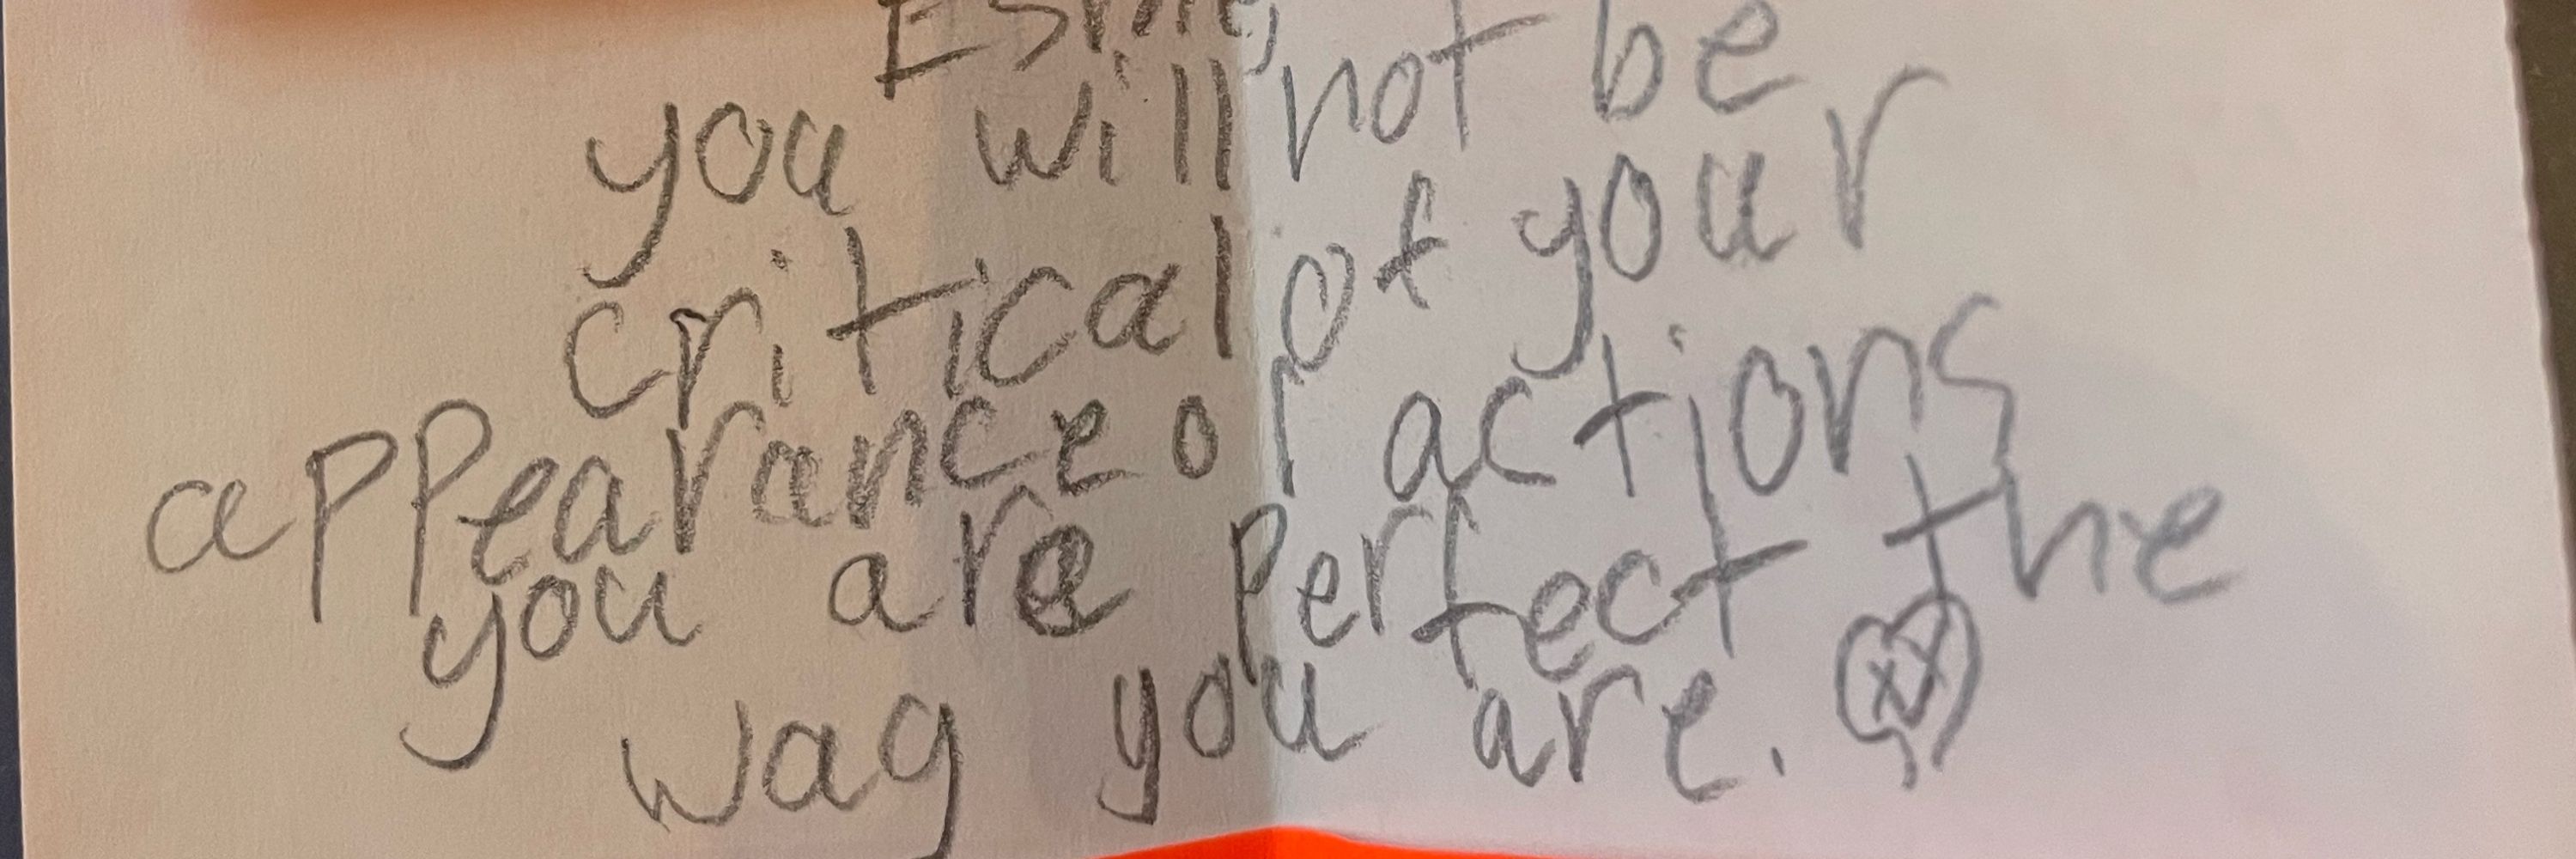 you will not be
critical of your
appearance or actions
you are perfect the
way you are.